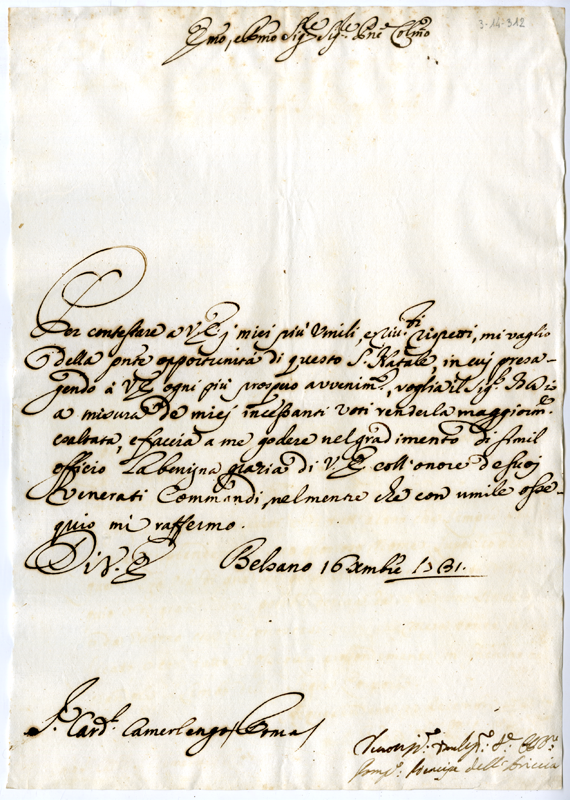 3-14-312
Emo, e Rmo Sig.re Sig.re Pne Colmo
Per contestare a V.E. j miej più Umili, e riu.ti rispetti, mi vaglio
della pnte opportunità di questo S. Natale, in cuj presa-
gendo à V.E. ogni più prospero avvenim.to, voglia il Sig.re
a misura de miej incessanti voti renderla maggiorm.te
esaltata, e faccia a me godere nel gradimento di simil
officio la benigna grazia di V.E. coll'onore de suoj
Venerati Commandi, nel mentre che con umile osse-
quio mi raffermo.
Di V.E. Belsano 16 Xmbre
S.r Card.le Camerlengo Roma